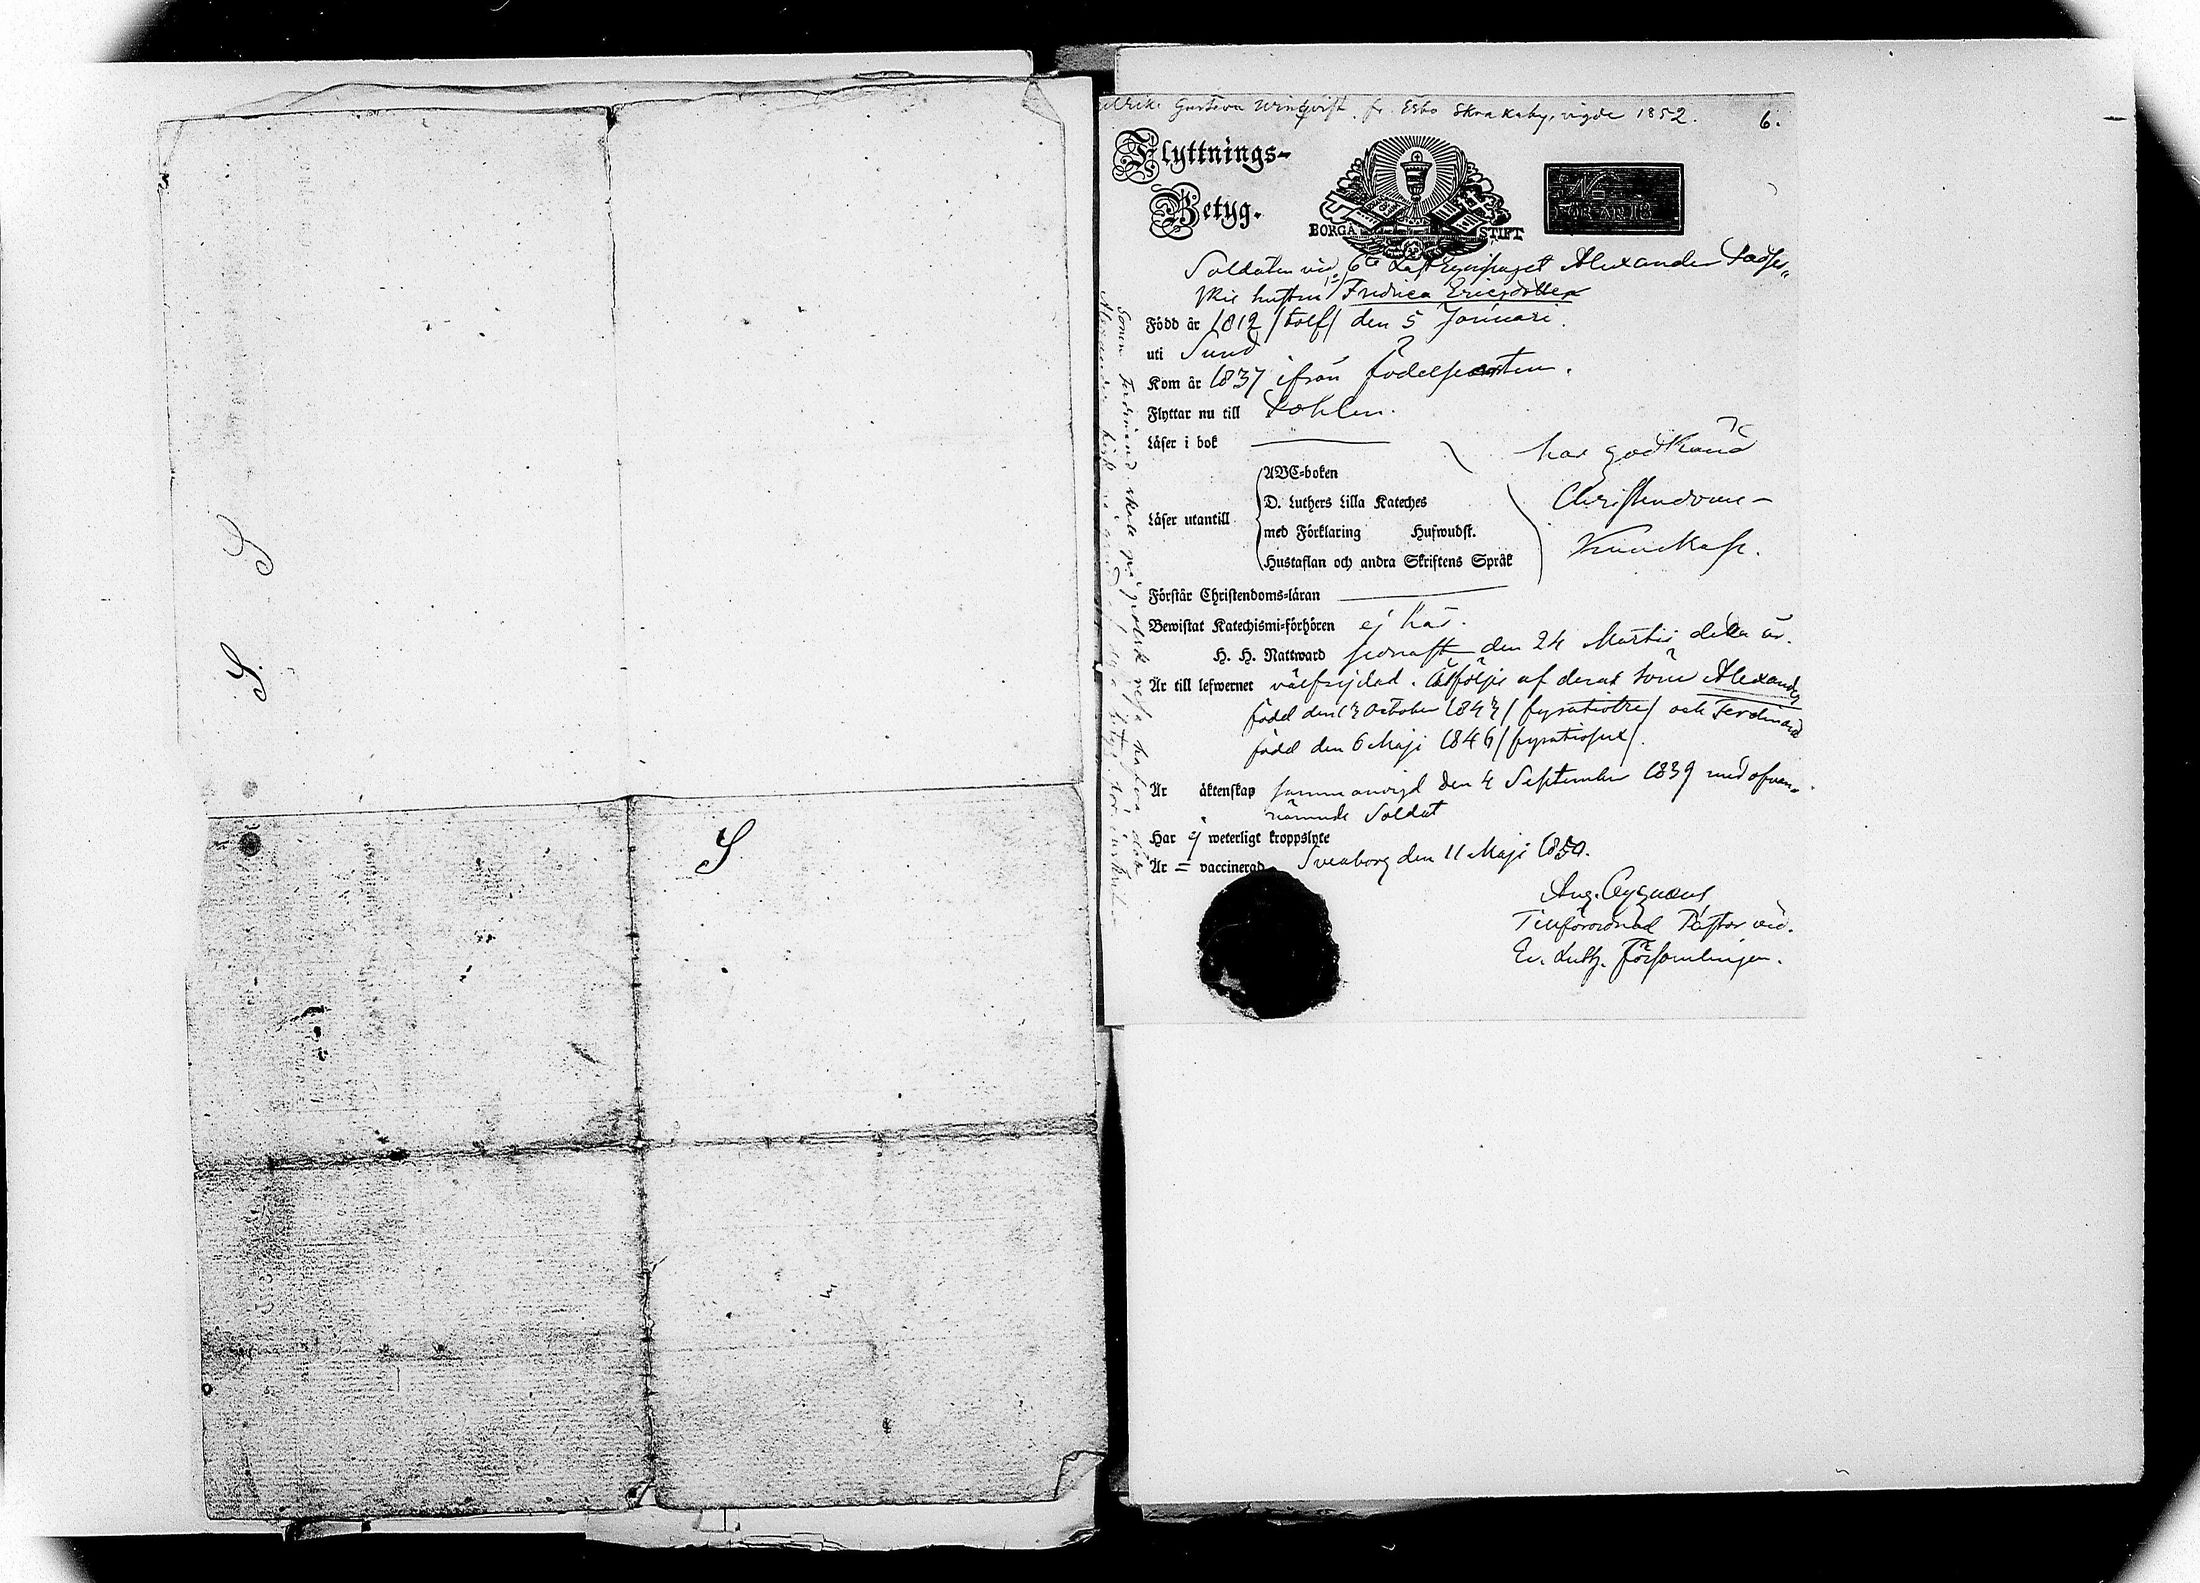 S
S.
S
Gustava Windqvist fr. Esbo vigde 1852. 6.
Flyttnings-
Betyg.
BORGÅ STIFT
No
FÖR ÅR 18
Soldaten vid 6te Alexander
hustru Fredrica Ericsdotter
Född år 1812 /tolf/ den 5 Januari.
uti Sund
Kom år 1837 ifrån födelseorten.
Flyttar nu till
Läser i bok
har godkänd
Christendoms-
Kunskap.
Läser utantill
ABC-boken
D. Luthers Lilla Kateches
med Förklaring Hufwudst.
Hustaflan och andra Skriftens Språk
Förstår Christendoms-läran
Bewistat Katechismi-förhören ej här.
H. H. Nattward sednast den 24 Martii detta år.
Är till lefwernet välfrejdad. Åtföljes af deras söner Alexander
född den October 1843 /fyratiotre/ och Ferdinand
född den 6 Maji 1846 /fyratiosex/.
Är äktenskap sammanvigd den 4 September 1839 med ofvan-
nämnde Soldat
Har ej weterligt kroppslyte
Är = vaccinerad Sveaborg den 11 Maji 1850.
Aug. Cygnaeus
Tillförordnad Pastor vid
Ev. Luth. Församlingen.
Sonen Ferdinand